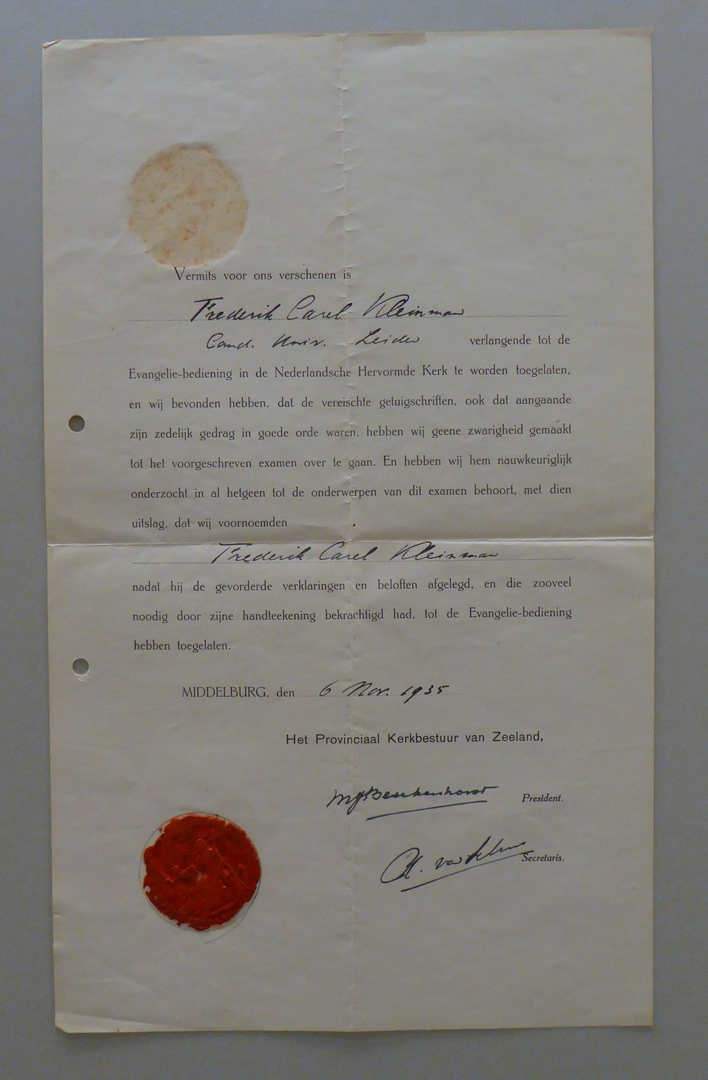 Vermits voor ons verschenen is
Frederik Carel Kleinman
Cand. Univ. Leiden verlangende tot de
Evangelie-bediening in de Nederlandsche Hervormde Kerk te worden toegelaten,
en wij bevonden hebben, dat de vereischte getuigschriften, ook dat aangaande
zijn zedelijk gedrag in goede orde waren, hebben wij geene zwarigheid gemaakt
tot het voorgeschreven examen over te gaan. En hebben wij hem nauwkeuriglijk
onderzocht in al hetgeen tot de onderwerpen van dit examen behoort, met dien
uitslag, dat wij voornoemden
Frederik Carel Kleinman
nadat hij de gevorderde verklaringen en beloften afgelegd, en die zooveel
noodig door zijne handteekening bekrachtigd had, tot de Evangelie-bediening
hebben toegelaten.
MIDDELBURG, den 6 Nov. 1935
Het Provinciaal Kerkbestuur van Zeeland,
President.
Secretaris.